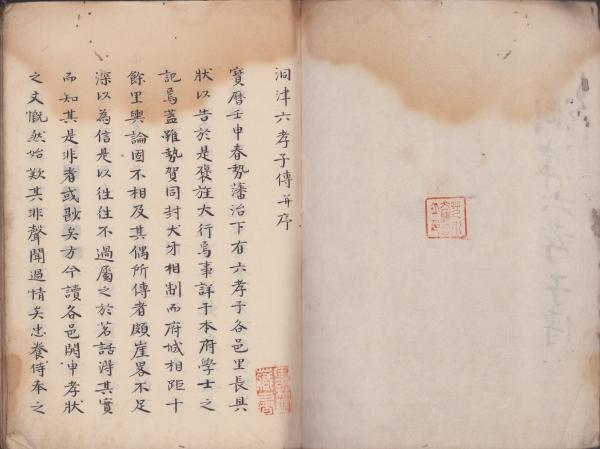 洞津六孝子傳并序
寶曆壬申春勢藩治下有六孝子各邑里長具
狀以告於是褒旌大行焉事詳于本府學士之
記焉蓋雖勢賀同封犬牙相制而府城相距十
餘里輿論固不相及其偶所傳者頗崖畧不足
深以為信是以徃徃不過屬之於茗話淂其實
而知其是非者或尠矣方今讀各邑閭申孝狀
之文慨然始歎其非聲聞過情矣忠養侍奉之
藏書